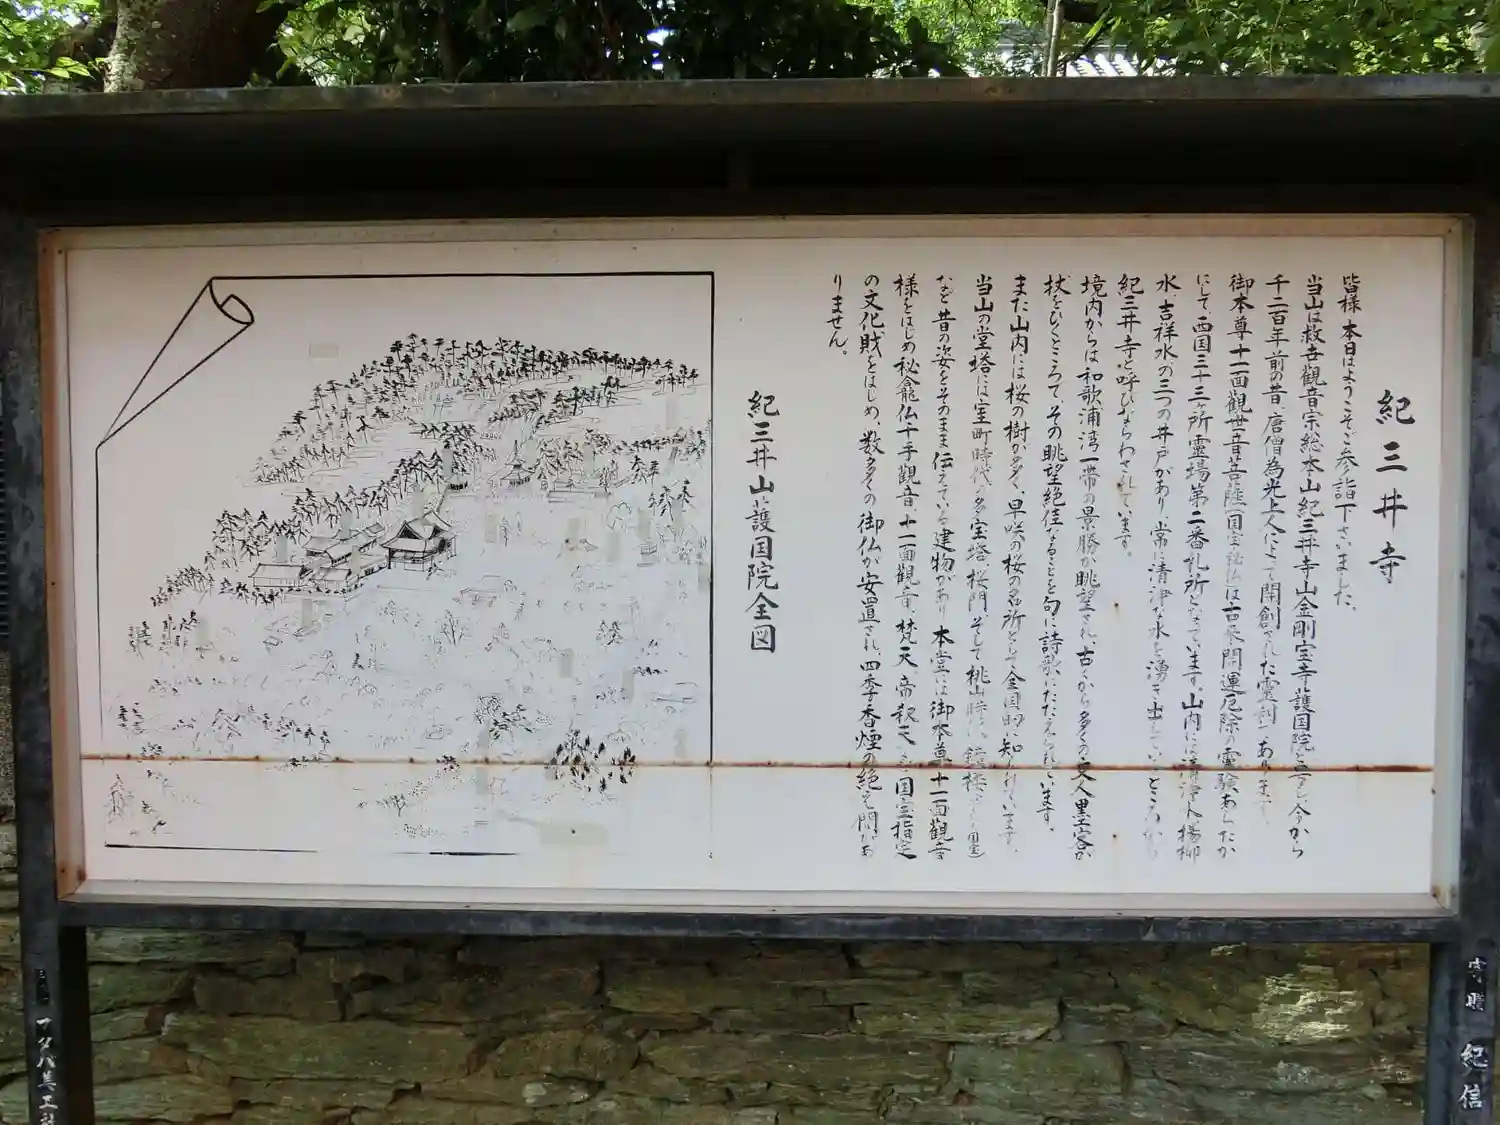 紀三井寺
皆様 本日はようこそご参詣下さいました。
当山は救世観音宗総本山紀三井寺山金剛宝寺護国院と 今から
千二百年前の昔、唐僧為光上人によって開創された霊刹 あります
御本尊十一面観世音菩薩(国宝・秘仏)は古来開運厄除の霊験あらたか
にして、西国三十三ヶ所霊場第二番札所となっています。山内には清浄水、楊柳
水、吉祥水の三つの井戸があり、常に清浄な水を湧き出していところから
紀三井寺と呼びならわされています。
境内からは和歌浦湾一帯の景勝が眺望され、古くから多くの文人墨客が
杖をひくところで、その眺望絶佳なることを句に詩歌にたたえられています。
また山内には桜の樹が多く、早咲の桜の名所として全国的に知られています。
当山の堂塔には室町時代の多宝塔、桜門、そして桃山時 鐘楼 国宝
など昔の姿をそのまま伝えている建物があり、本堂には御本尊十一面観音
様をはじめ秘龕仏千手観音、十一面観音、梵天、帝釈天 国宝指定
の文化財をはじめ、数多くの御仏が安置され、四季香煙の絶え間あ
りません。
紀三井山護国院全図
寄贈 紀信
フタバ美工社